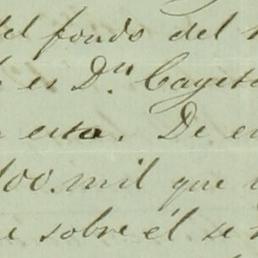 del fondo del
es Dⁿ. Cayet
esta. De e
100.mil que
e sobre él se